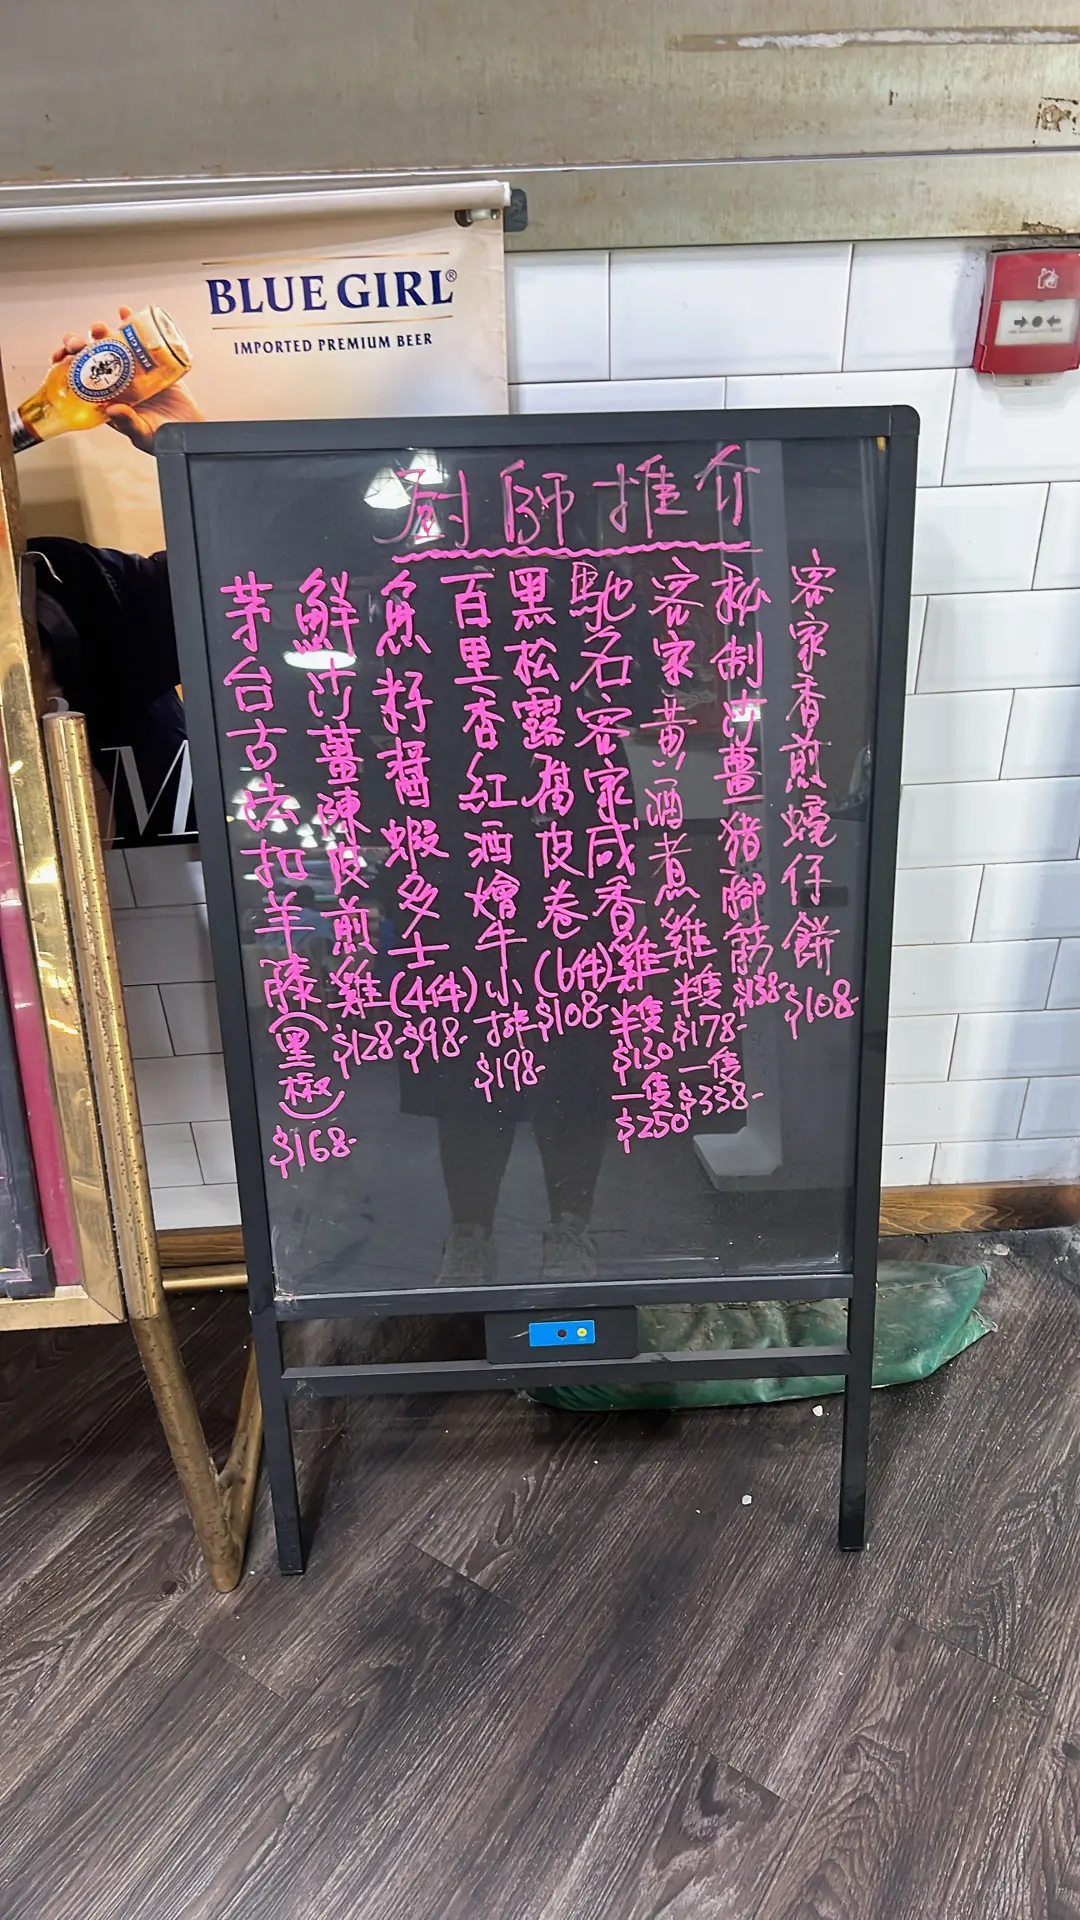 BLUE GIRL®
IMPORTED PREMIUM BEER
BLUE GIRL
厨師推介
客家香煎蠔仔餅 $108-
秘制沙薑豬腳筋 $138-
客家黃酒煮雞 半隻 $178- 一隻 $338-
馳名客家咸香雞 半隻 $130 一隻 $250
黑松露腐皮卷(6件) $108-
百里香紅酒燴牛小排 $198-
魚籽醬蝦多士(4件) $98-
鮮沙薑陳皮煎雞 $128-
茅台古法扣羊膝(黑椒) $168-
M